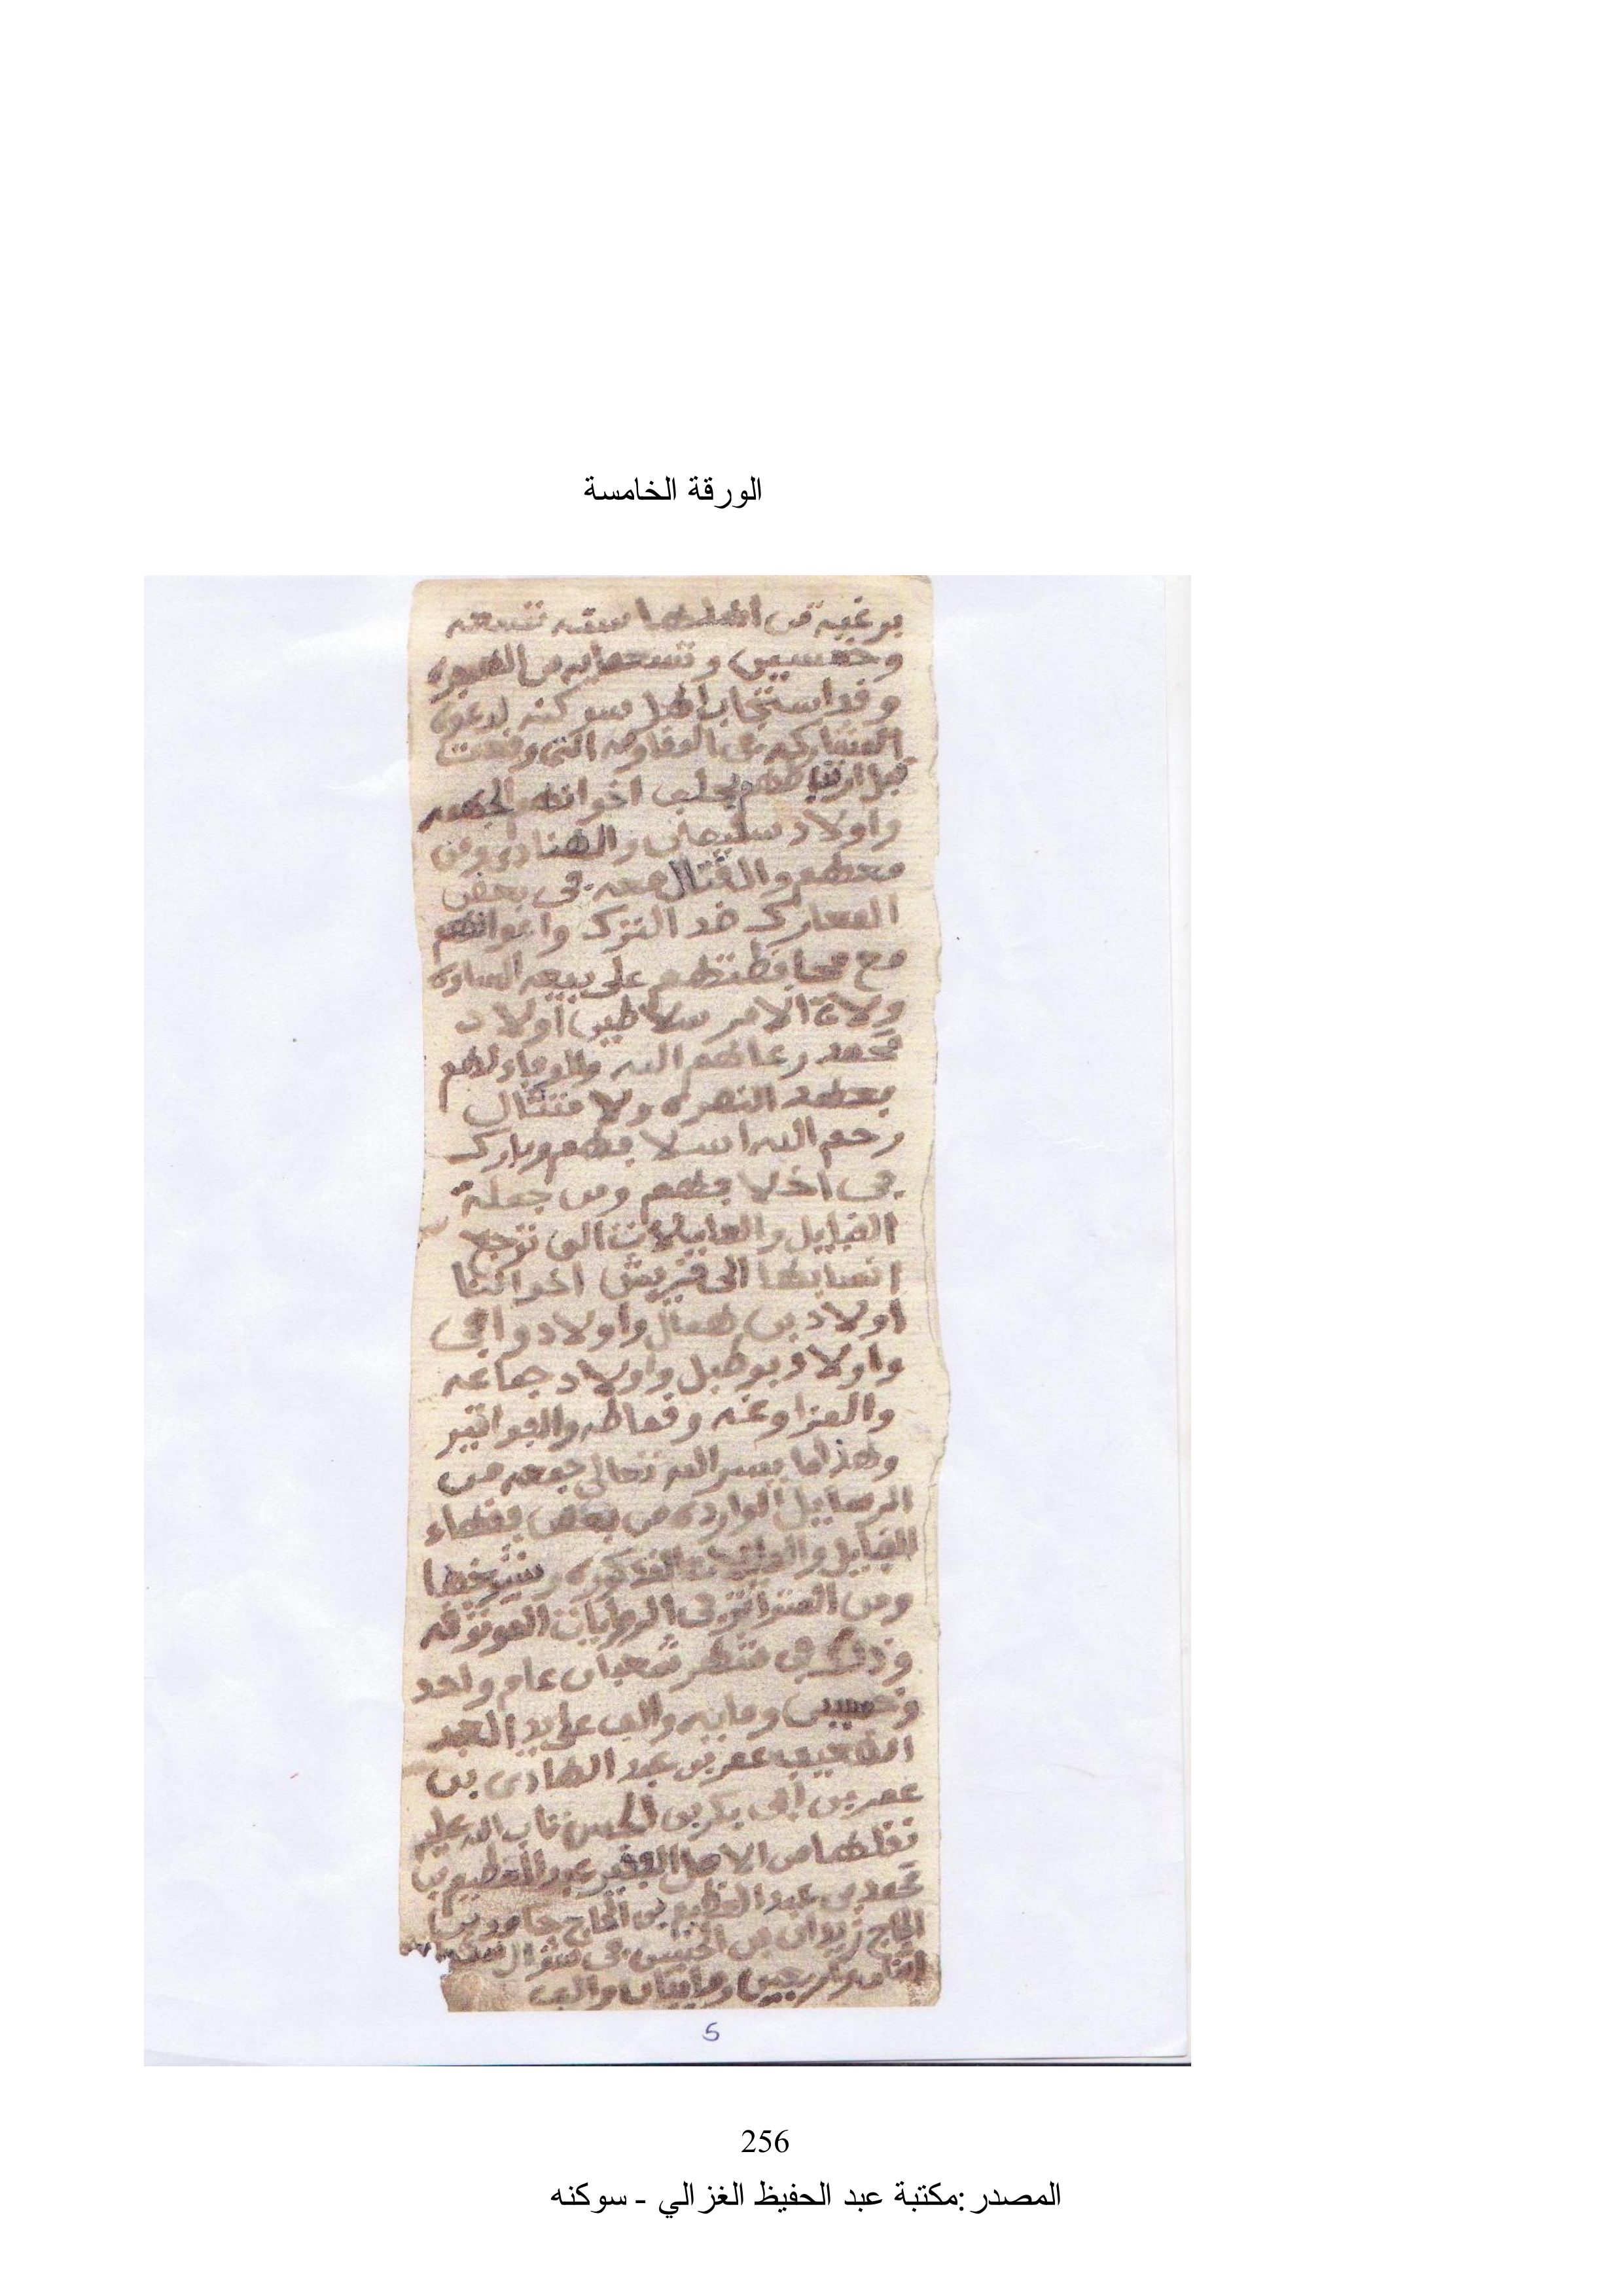 الورقة الخامسة
برغبه من اهلها سنه تسعه
وخمسين وتسعمايه من الهجره
وقد استجاب اهل سوكنه لدعوى
المشاركه في المقاومه التى وقعت
قبل ارتباطهم بحلف اخوانهم الجهمه
واولاد سليمان والهنادى ومن
معهم والقتال معه في بعض
المعارك ضد الترك واعوانهم
مع محافظتهم على بيعه الساده
ولاة الامر سلاطين اولاد
محمد رعاهم الله والوفاء لهم
بعهد النصره ولا متثال
رحم الله اسلافهم وبارك
في اخلافهم ومن جملة
القبايل والعايلات التى ترجع
انسابها الى قريش اخواننا
اولاد بن همال واولاد وافى
واولاد بوطبل واولاد جماعه
والمزاوغه وقماطه والفواتير
وهذا ما يسر الله تعالى جمعه من
الرسايل الوارده من بعض فقهاء
القبايل والعايلات المذكوره وشيخها
ومن المتواتر في الروايات الموثوقه
وذلك في شهر شعبان عام واحد
وخمسين ومايه والف على يد العبد
الضعيف عمر بن عبد الهادى بن
عمر بن ابى بكر بن تاب الله عليه
نقلها من الاصل الفقير عبد العظيم بن
محمد بن عبد العظيم بن الحاج حامد بن
الحاج زيدان بن في شوال سنه
واربعين ومايتان والف
5
256
المصدر :مكتبة عبد الحفيظ الغزالي - سوكنه